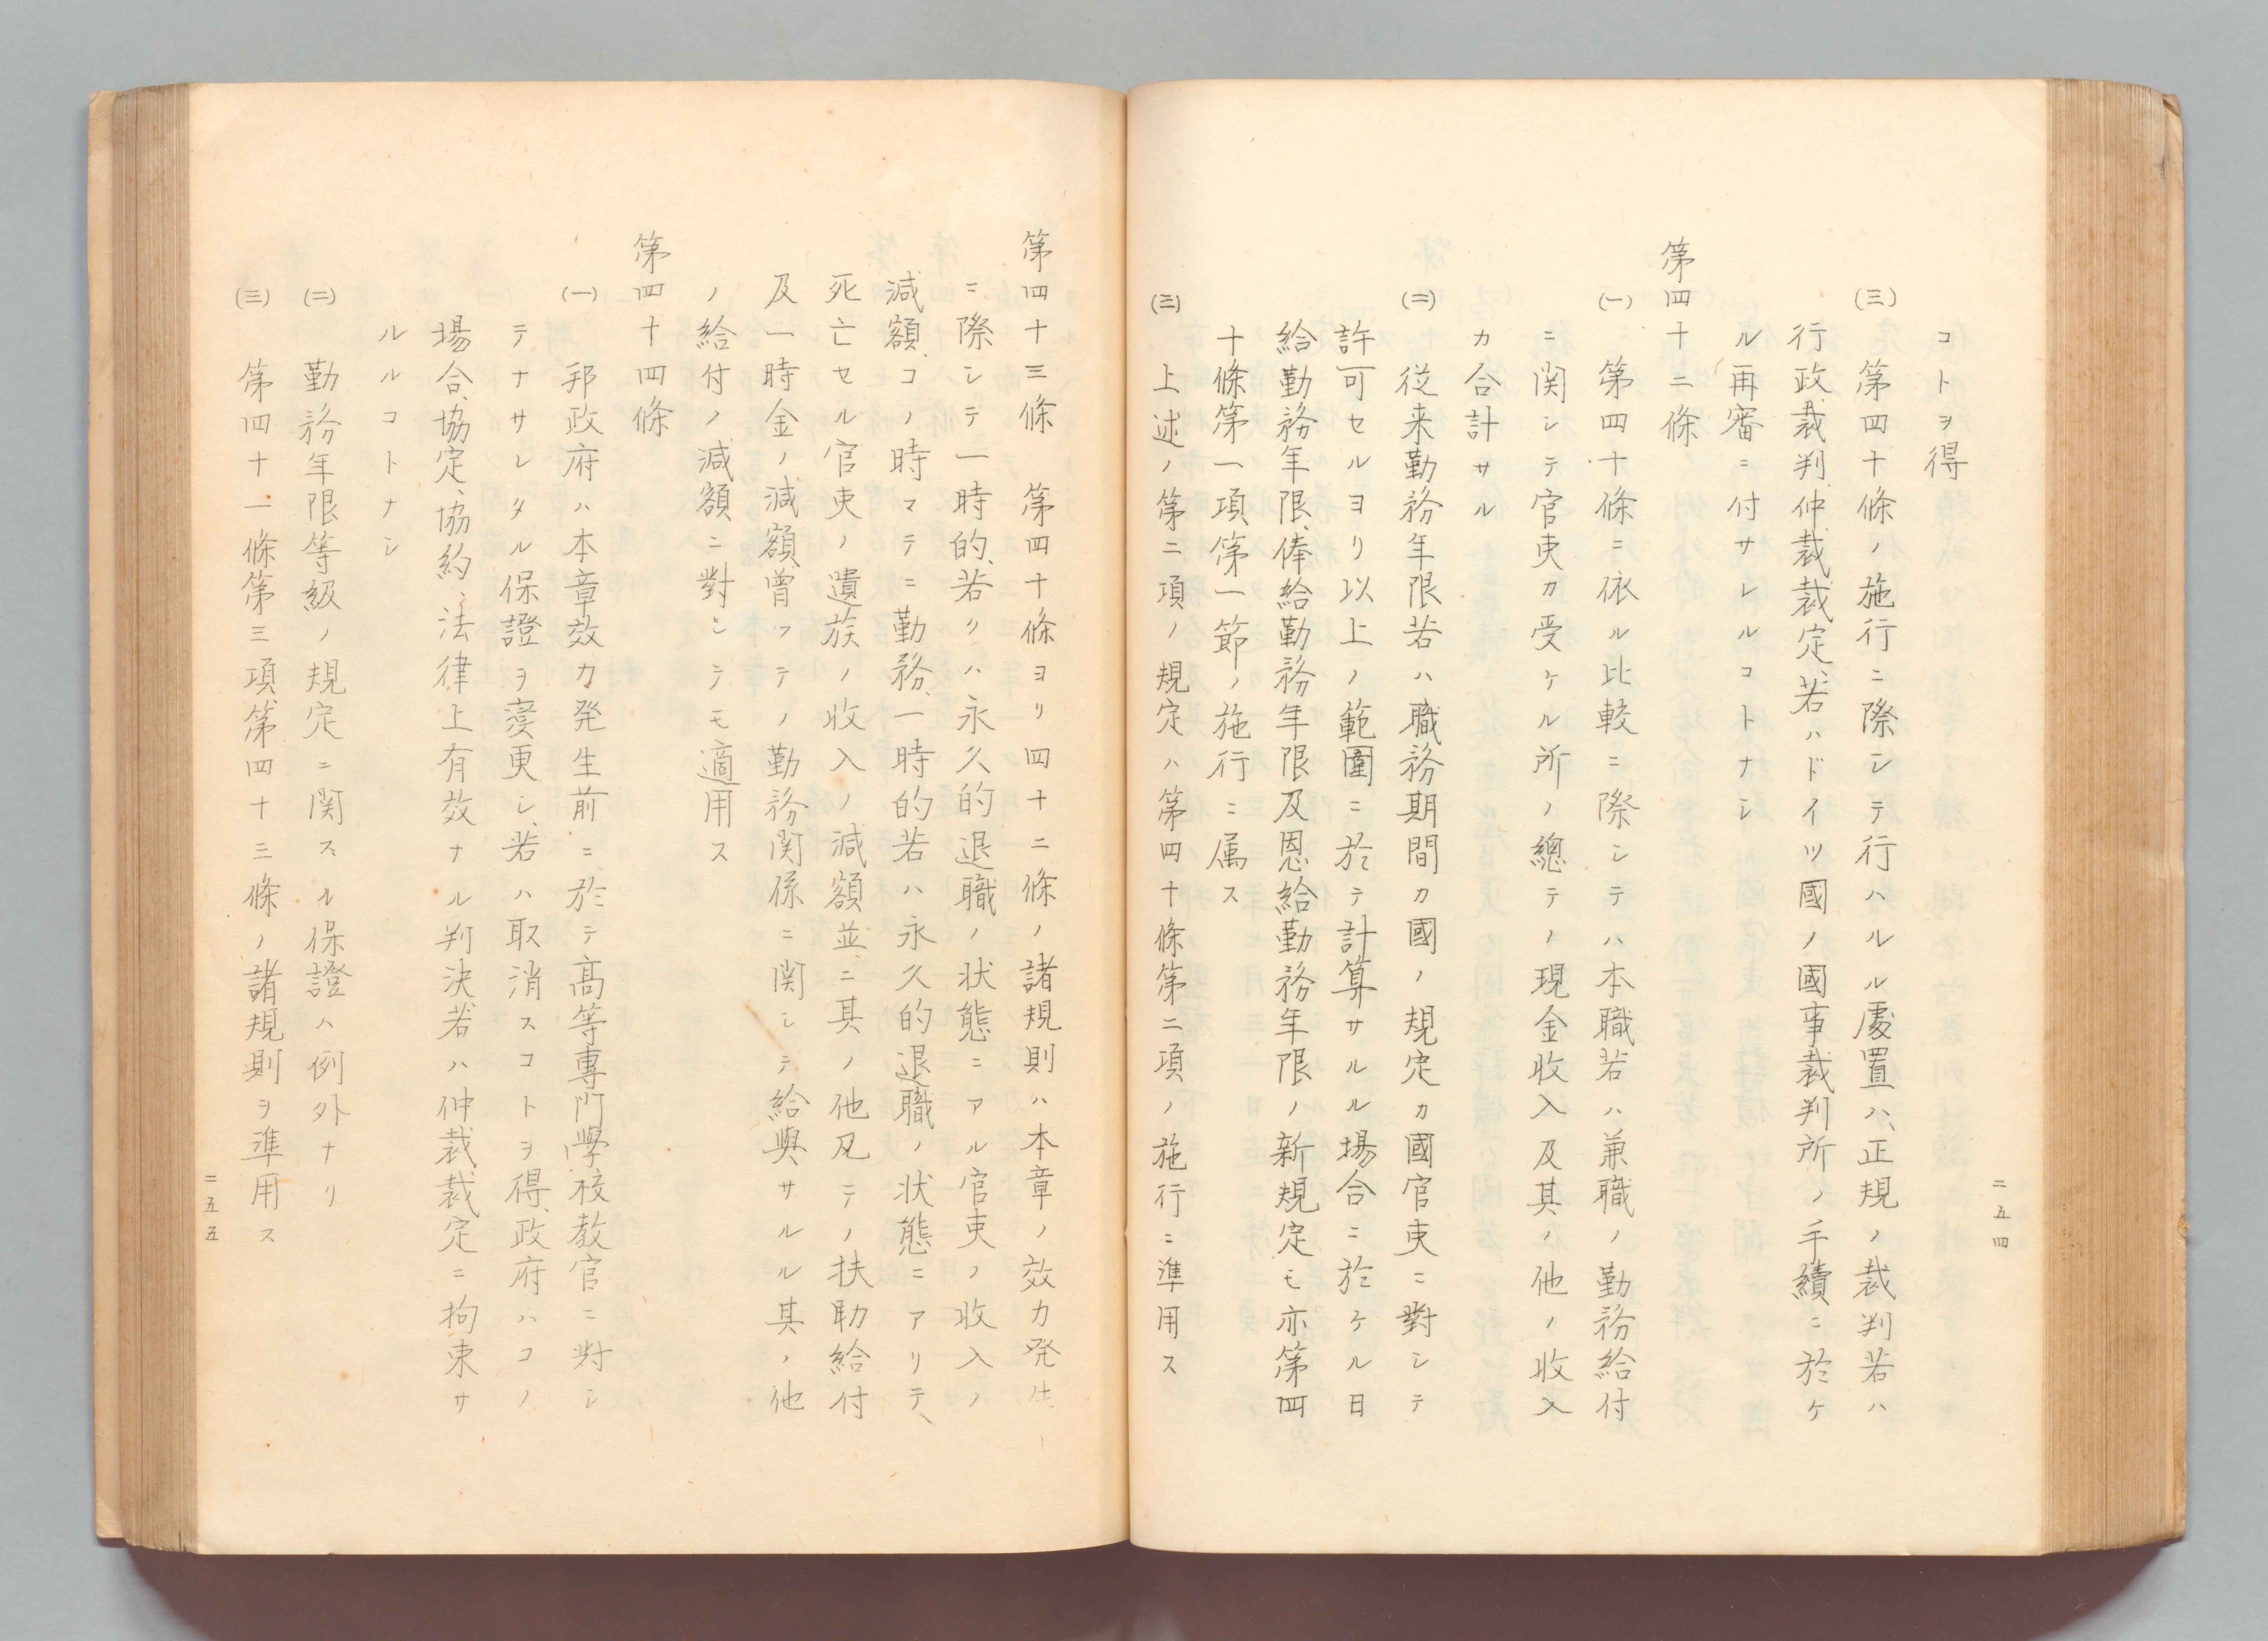 コトヲ得
(三) 第四十條ノ施行ニ際シテ行ハルル處置ハ、正規ノ裁判若ハ
行政裁判、仲裁裁定、若ハドイツ國ノ國事裁判所ノ手續ニ於ケ
ル再審ニ付サレルコトナシ
第四十二條
(一) 第四十條ニ依ル比較ニ際シテハ本職若ハ兼職ノ勤務給付
ニ関シテ官吏カ受ケル所ノ總テノ現金收入及其ノ他ノ收入
カ合計サル
(二) 從来勤務年限若ハ職務期間カ國ノ規定カ國官吏ニ對シテ
許可セルヨリ以上ノ範圍ニ於テ計算サルル場合ニ於ケル日
給勤務年限、俸給勤務年限及恩給勤務年限ノ新規定モ亦第四
十條第一項第一節ノ施行ニ属ス
(三) 上述ノ第二項ノ規定ハ第四十條第二項ノ施行ニ準用ス
二五四
第四十三條 第四十條ヨリ四十二條ノ諸規則ハ本章ノ效力発生
ニ際シテ一時的、若クハ永久的退職ノ状態ニアル官吏ノ收入ノ
減額、コノ時マテニ勤務、一時的若ハ永久的退職ノ状態ニアリテ、
死亡セル官吏ノ遺族ノ收入ノ減額並ニ其ノ他凡テノ扶助給付
及一時金ノ減額、曾ツテノ勤務関係ニ関シテ給與サルル其ノ他
ノ給付ノ減額ニ對シテモ適用ス
第四十四條
(一) 邦政府ハ本章效力発生前ニ於テ高等專門學校教官ニ対シ
テナサレタル保證ヲ変更シ、若ハ取消スコトヲ得、政府ハコノ
場合、協定、協約、法律上有效ナル判決若ハ仲裁裁定ニ拘束サ
ルルコトナシ
(二) 勤務年限等級ノ規定ニ関スル保證ハ例外ナリ
(三) 第四十一條第三項、第四十三條ノ諸規則ヲ準用ス
二五五